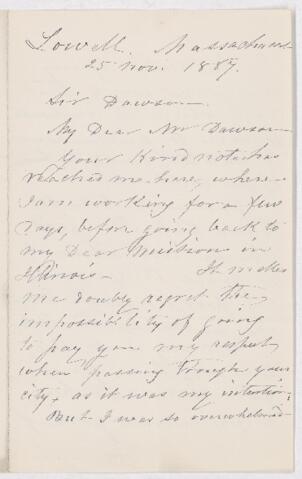 Lowell, Massachusett
25 nov. 1887.
Sir Dawson—
My Dear Mr Dawson—
Your kind note has
reached me here, where
I am working for a few
days, before going back to
my Dear Mission in
Illinois— It makes
me doubly regret the
impossibility of going
to pay you my respect
when passing trough your
city, as it was my intention.
But I was so overwhelmed